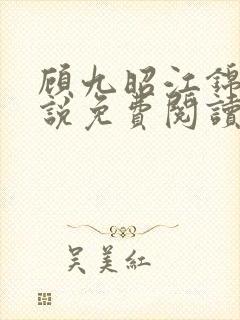 顾九昭江錦
說免費閱讀
吴美紅